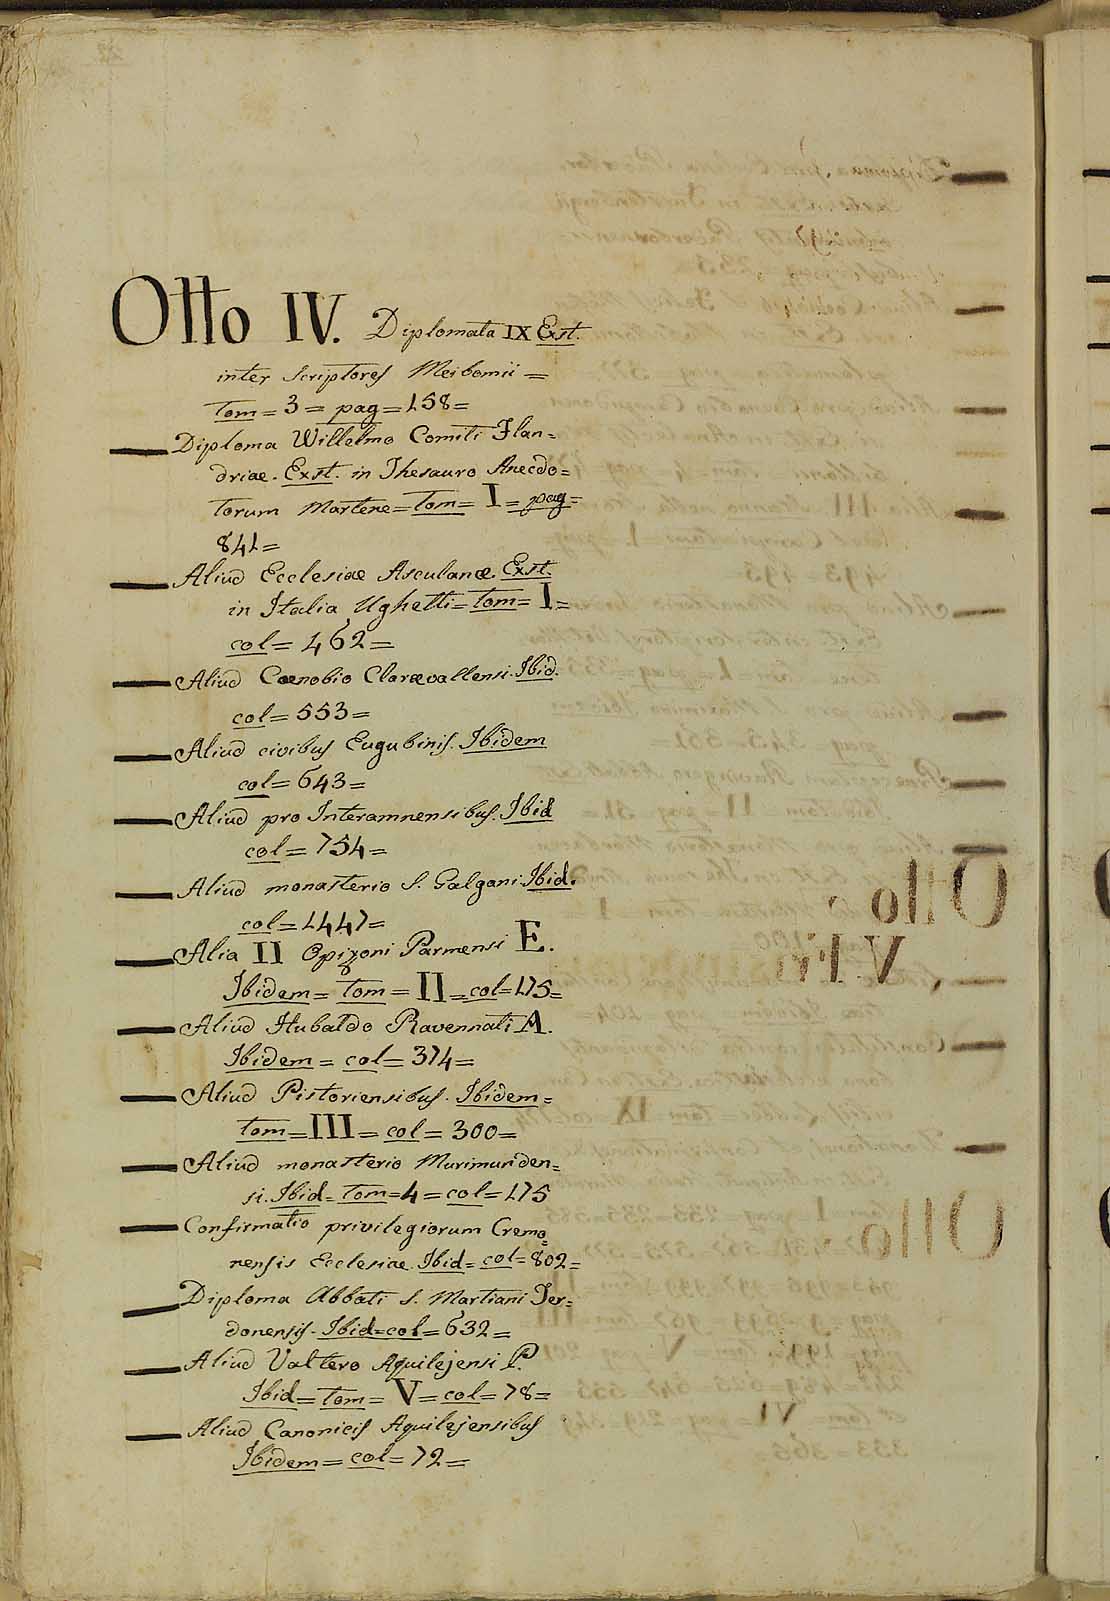 Otto IV. Diplomata IX Exst.
inter Scriptores Meibomii =
tom = 3 = pag = 158 =
Diploma Willelmo Comiti Flan=
driae. Exst. in Thesauro Anecdo=
torum Martene = tom = I = pag =
841 =
Aliud Ecclesiae Asculanae. Exst.
in Italia Ughelli = tom = I =
col = 462 =
Aliud Coenobio Claraevallensi. Ibid.
col = 553 =
Aliud civibus Eugubinis. Ibidem
col = 643 =
Aliud pro Interamnensibus. Ibid
col = 754 =
Aliud monasterio S. Galgani. Ibid.
col = 1447 =
Alia II Opizoni Parmensi E.
Ibidem = tom = II = col = 175 =
Aliud Hubaldo Ravennati A.
Ibidem = col = 374 =
Aliud Pistoriensibus. Ibidem =
tom = III = col = 300 =
Aliud monasterio Murimunden=
si. Ibid = tom = 4 = col = 175
Confirmatio privilegiorum Cremo=
nensis Ecclesiae. Ibid = col = 802 =
Diploma Abbati S. Martiani Ter=
donensis. Ibid = col = 632 =
Aliud Valtero Aquilejensi P.
Ibid = tom = V = col = 78 =
Aliud Canonicis Aquilejensibus
Ibidem = col = 72 =